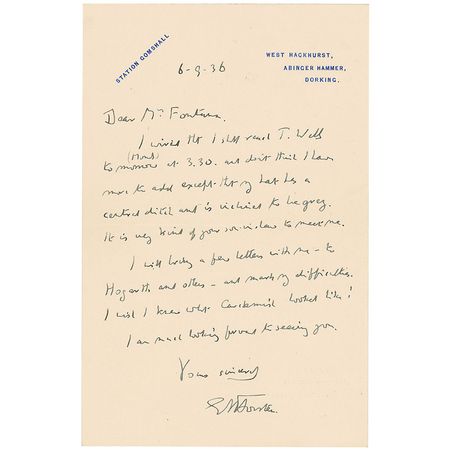 STATION GOMSHALL
WEST HACKHURST,
ABINGER HAMMER,
DORKING.
6-9-36
Dear Mrs Fontana.
I wired tht I shll reach T. Wells
(Mond)
tomorrow at 3.30. and don't think I have
more to add except tht my hat has a
central ditch and is inclined to be grey.
It is very kind of your son-in-law to meet me.
I will bring a few letters with me - to
Hogarth and others - and mark my difficulties.
I wish I knew what Carchemish looked like!
I am much looking forward to seeing you.
Yours sincerely
EMForster.